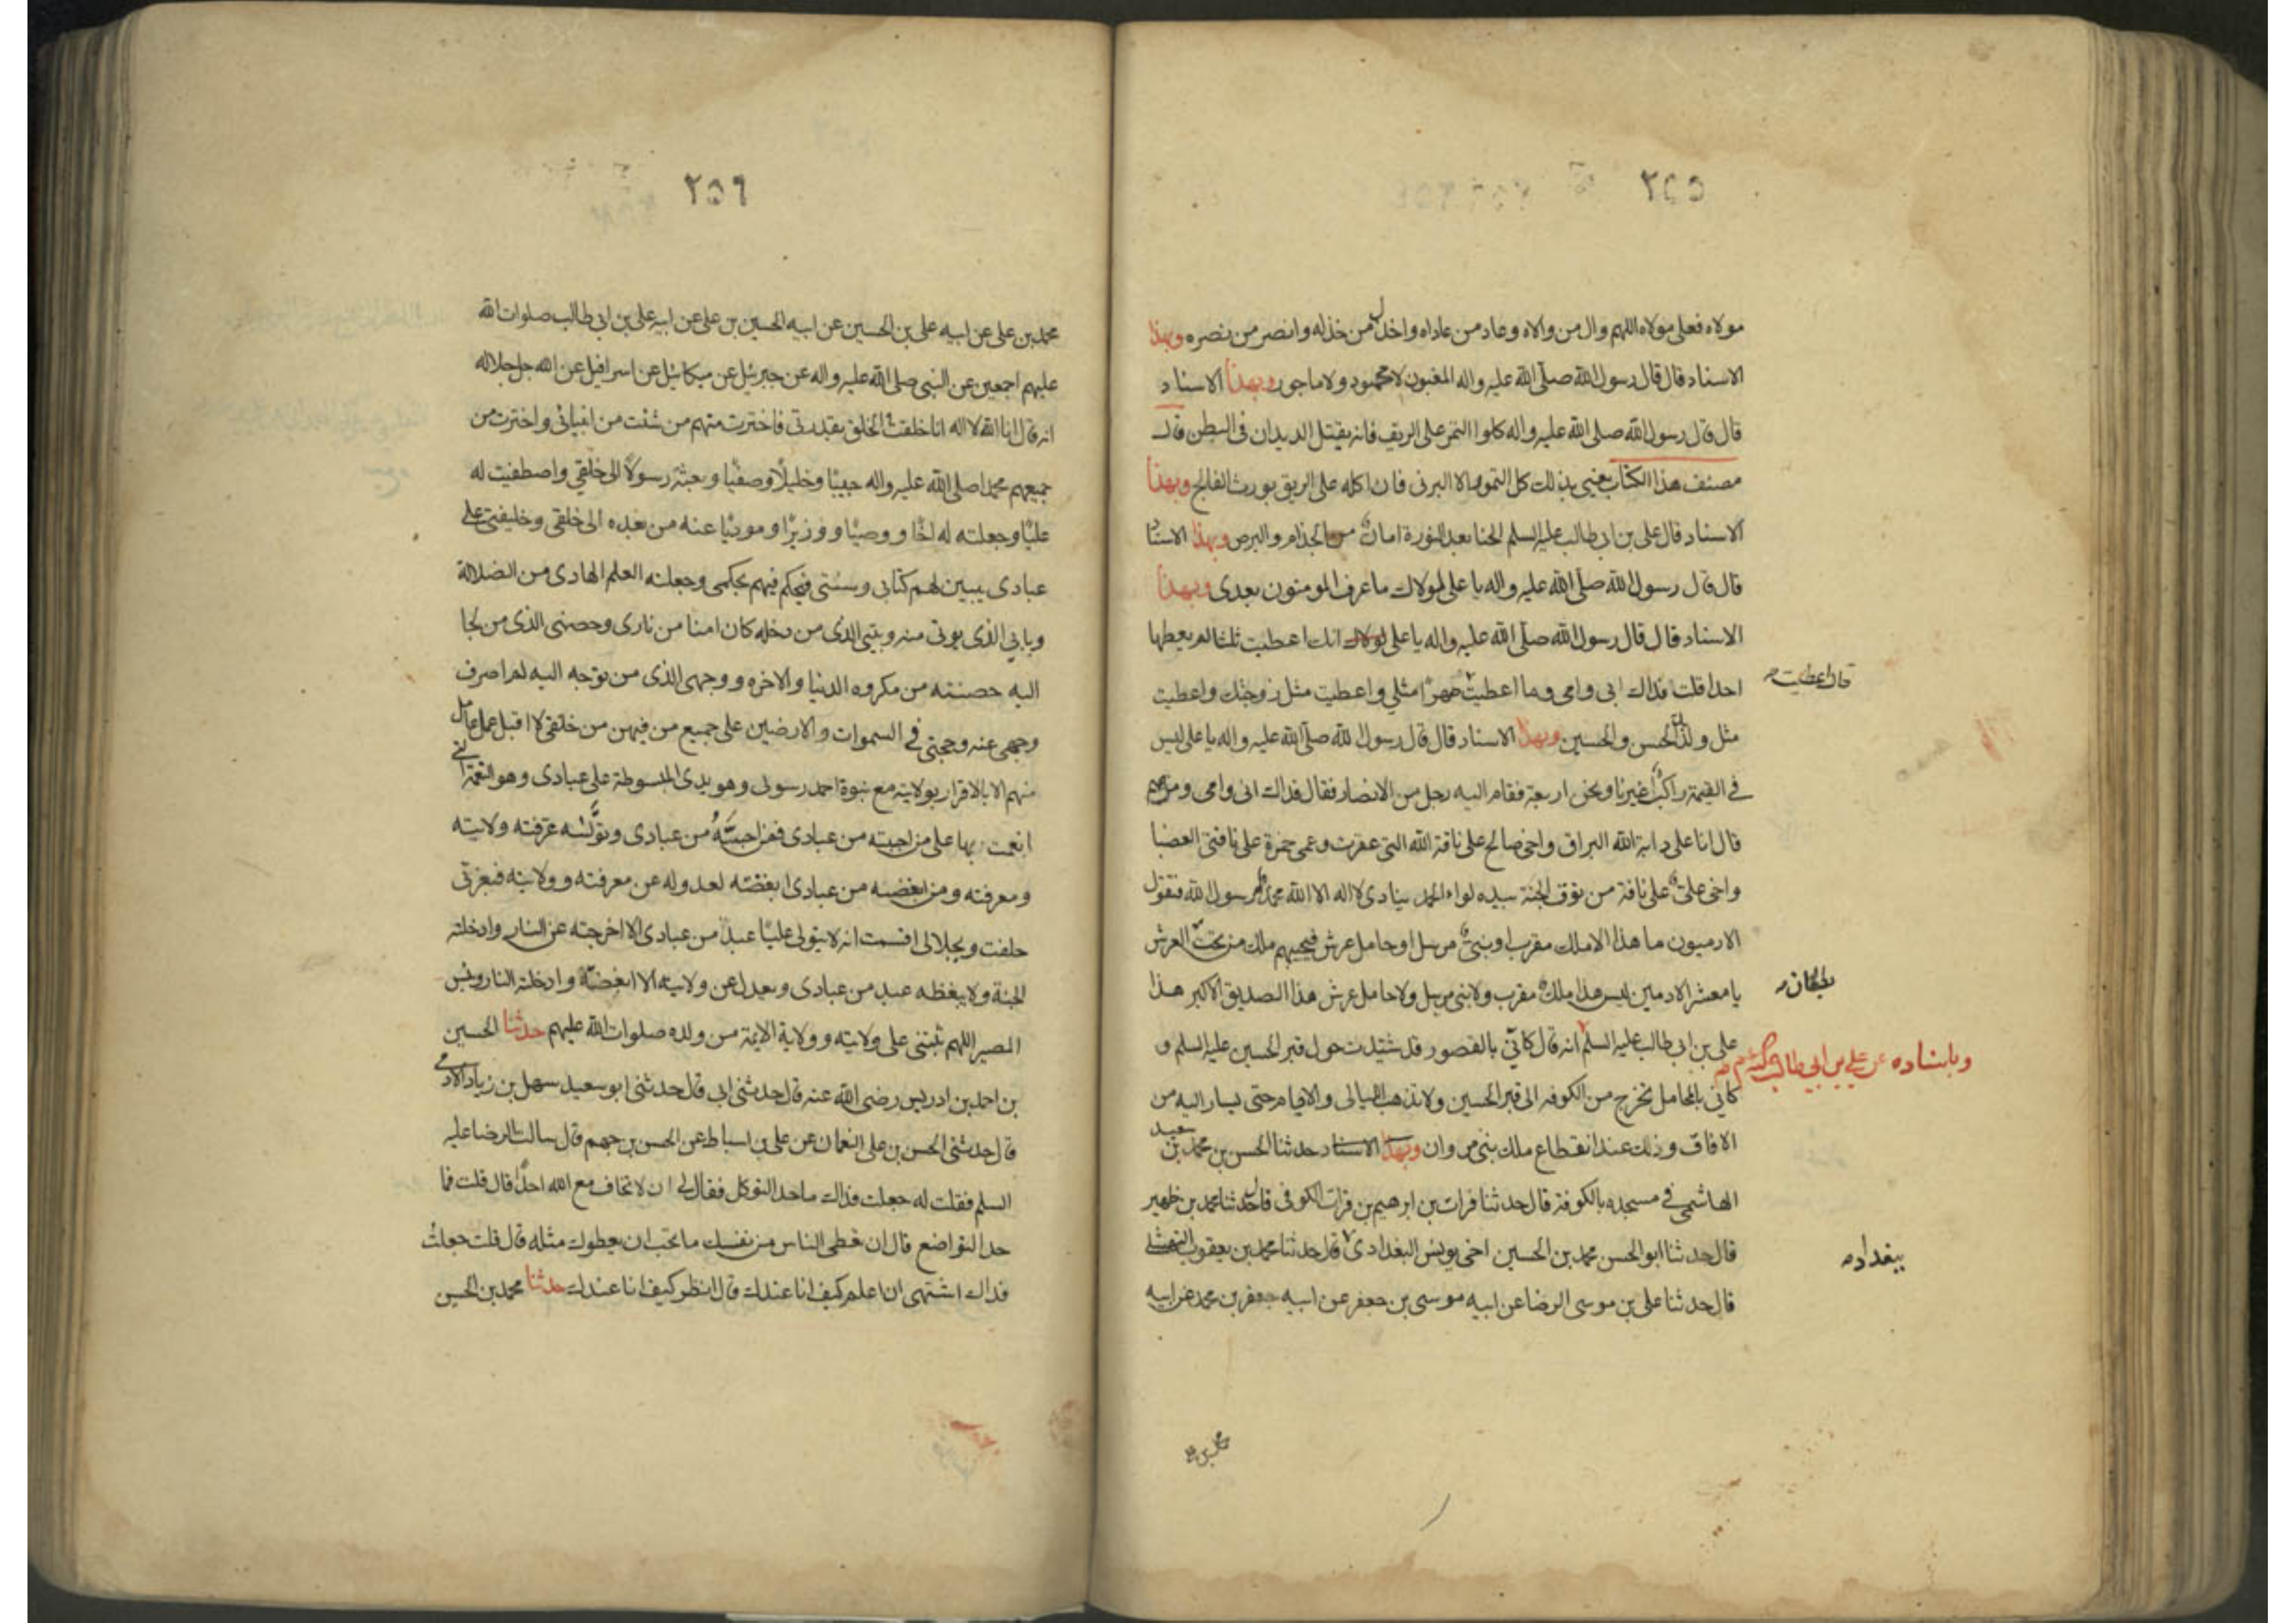 ٢٥٥
مولاه فعلى مولاه اللهم وال من والاه وعاد من عاداه واخذل من خذله وانصر من نصره وبهذا
الاسناد قال قال رسول الله صلى الله عليه واله المغبون لا محمود ولا ماجور وبهذا الاسناد
قال قال رسول الله صلى الله عليه واله كلوا التمر على الريق فانه يقتل الديدان فى البطن قال
مصنف هذا الكتاب يعنى بذلك كل التمور الا البرنى فان اكله على الريق يورث الفالج وبهذا
الاسناد قال على بن ابى طالب عليه السلم الحنا بعد النورة امان من الجذام والبرص وبهذا الاسناد
قال قال رسول الله صلى الله عليه واله يا على لولاك ما عرف المومنون بعدى وبهذا
الاسناد قال قال رسول الله صلى الله عليه واله يا على لولاك انك اعطيت ثلثا لم يعطها
احد قلت فداك ابى وامى وما اعطيت صهرا مثلى واعطيت مثل زوجتك واعطيت
قال اعطيت
مثل ولدك الحسن والحسين وبهذا الاسناد قال قال رسول الله صلى الله عليه واله يا على ليس
فى القيمة راكب غيرنا ونحن اربعة فقام اليه رجل من الانصار فقال فداك ابى وامى ومن هم
قال انا على دابة الله البراق واخى صالح على ناقة الله التى عقرت وعمى حمزة على ناقتى العضبا
واخى على على ناقة من نوق الجنة بيده لواء الحمد ينادى لا اله الا الله محمد رسول الله فيقول
الادميون ما هذا الا ملك مقرب او نبى مرسل او حامل عرش فيجيبهم ملك من تحت العرش
يا معشر الادمين ليس هذا ملك مقرب ولا نبى مرسل ولا حامل عرش هذا الصديق الاكبر هذا
بطنان
على بن ابى طالب عليه السلم انه قال كانى بالقصور قد شيدت حول قبر الحسين عليه السلم و
وباسناده عن على بن ابى طالب
كانى بالمحامل تخرج من الكوفه الى قبر الحسين ولا تذهب الليالى والايام حتى يسار اليه من
الافاق وذلك عند انقطاع ملك بنى مروان وبهذا الاسناد حدثنا الحسن بن محمد بن سعيد
الهاشمى فى مسجده بالكوفة قال حدثنا فرات بن ابرهيم بن فرات الكوفى قال حدثنا محمد بن ظهير
قال حدثنا ابو الحسن محمد بن الحسين اخى يونس البغدادى قال حدثنا محمد بن يعقوب النهشلى
ببغداد
قال حدثنا على بن موسى الرضا عن ابيه موسى بن جعفر عن ابيه جعفر بن محمد عن ابيه
محمد بن
٢٥٦
محمد بن على عن ابيه على بن الحسين عن ابيه الحسين بن على عن ابيه على بن ابى طالب صلوات الله
عليهم اجمعين عن النبى صلى الله عليه واله عن جبرئيل عن ميكائيل عن اسرافيل عن الله جل جلاله
انه قال انا الله لا اله انا خلقت الخلق بقدرتى فاخترت منهم من شئت من انبيائى واخترت من
جميعهم محمدا صلى الله عليه واله حبيبا وخليلا وصفيا وبعثته رسولا الى خلقى واصطفيت له
عليا وجعلته له اخا ووصيا ووزيرا ومؤديا عنه من بعده الى خلقى وخليفتى على
عبادى يبين لهم كتابى وسنتى فيحكم فيهم بحكمى وجعلته العلم الهادى من الضلالة
وبابي الذى يوتى منه وبيتى الذى من دخله كان امنا من نارى وحصنى الذى من لجا
اليه حصنته من مكروه الدنيا والاخره ووجهى الذى من توجه اليه لم اصرف
وجهى عنه وحجتى فى السموات والارضين على جميع من فيهن من خلقى لا اقبل عمل عامل
منهم الا بالاقرار بولايته مع نبوة احمد رسولى وهو يدى المبسوطة على عبادى وهو النعمة التى
انعمت بها على من احببته من عبادى فمن احببته من عبادى وتوليته عرفته ولايته
ومعرفته ومن ابغضته من عبادى ابغضته لعدوله عن معرفته وولايته فبعزتى
حلفت وبجلالى اقسمت انه لا يتولى عليا عبد من عبادى الا اخرجته عن النار وادخلته
الجنة ولا يبغظه عبد من عبادى ويعدل عن ولايته الا ابغضته وادخلته النار وبئس
المصير اللهم ثبتنى على ولايته وولاية الايمة من ولده صلوات الله عليهم حدثنا الحسين
بن احمد بن ادريس رضى الله عنه قال حدثنى ابى قال حدثنى ابو سعيد سهل بن زياد الادمى
قال حدثنى الحسن بن على النعمان عن على بن اسباط عن الحسن بن جهم قال سالت الرضا عليه
السلم فقلت له جعلت فداك ما حد التوكل فقال لى ان لا تخاف مع الله احدا قال قلت فما
حد التواضع قال ان تعطى الناس من نفسك ما تحب ان يعطوك مثله قال قلت جعلت
فداك اشتهى ان اعلم كيف انا عندك قال انظر كيف انا عندك حدثنا محمد بن الحسن